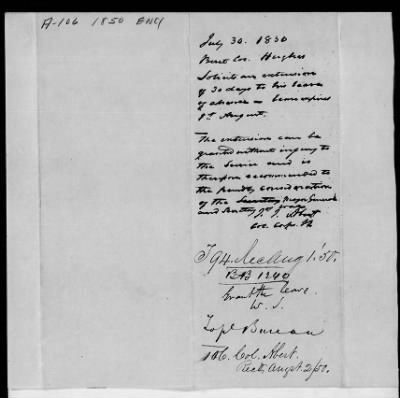 A-106 1850 ENG
July 30. 1850
Hughes
Solicits an extension
of 30 days to his leave
of absence - leave expires
August.
The extension can be
granted without injury to
the Service and is
therefore recommended to
the consideration
of the Secretary Major General
and Secretary
J. J. Abert
Col. Corps. T.E.
94. Rec Aug 1. '50.
1240
Grant the leave.
W. S.
Topl Bureau
106. Col. Abert.
Recd. Augst. 2/50.